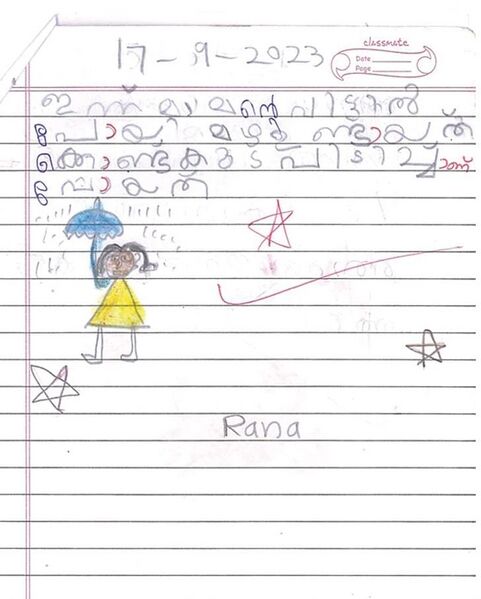 17-9-2023
classmate
Date
Page
ഇന്ന് വിട്ടിൽ
പോയി മഴ ണ്ടായത്
കൊണ്ട് കുട പിടിച്ചാണ്
പോയത്
Rana